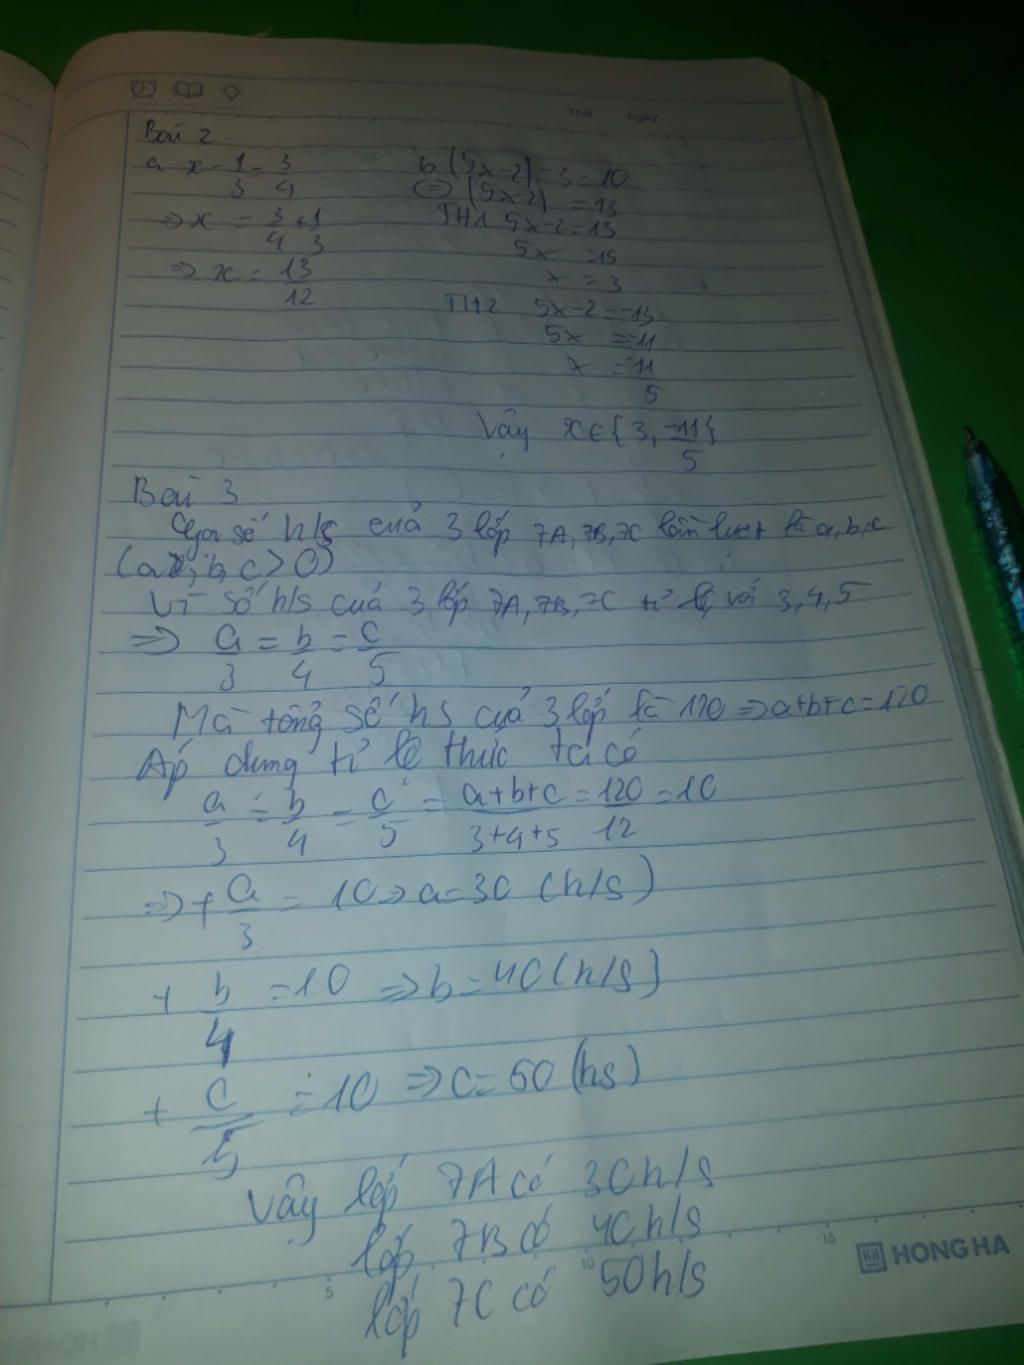 Thứ ngày
Bài 2
a x - 1/3 = 3/4
=> x = 3/4 + 1/3
=> x = 13/12
b |5x-2| - 3 = 10
<=> |5x-2| = 13
TH1 5x-2=13
5x =15
x =3
TH2 5x-2=-13
5x =-11
x =-11/5
Vậy x∈{3, -11/5}
Bài 3
Gọi số h/s của 3 lớp 7A, 7B, 7C lần lượt là a, b, c
(a, b, c > 0)
Vì số h/s của 3 lớp 7A, 7B, 7C tỉ lệ với 3, 4, 5
=> a/3 = b/4 = c/5
Mà tổng số hs của 3 lớp là 120 => a+b+c=120
Áp dụng tỉ lệ thức ta có
a/3 = b/4 = c/5 = a+b+c/3+4+5 = 120/12 = 10
=> + a/3 = 10 => a=30 (h/s)
+ b/4 = 10 => b=40 (h/s)
+ c/5 = 10 => c=50 (hs)
Vậy lớp 7A có 30 h/s
lớp 7B có 40 h/s
lớp 7C có 50 h/s
5 10 15
HONG HA